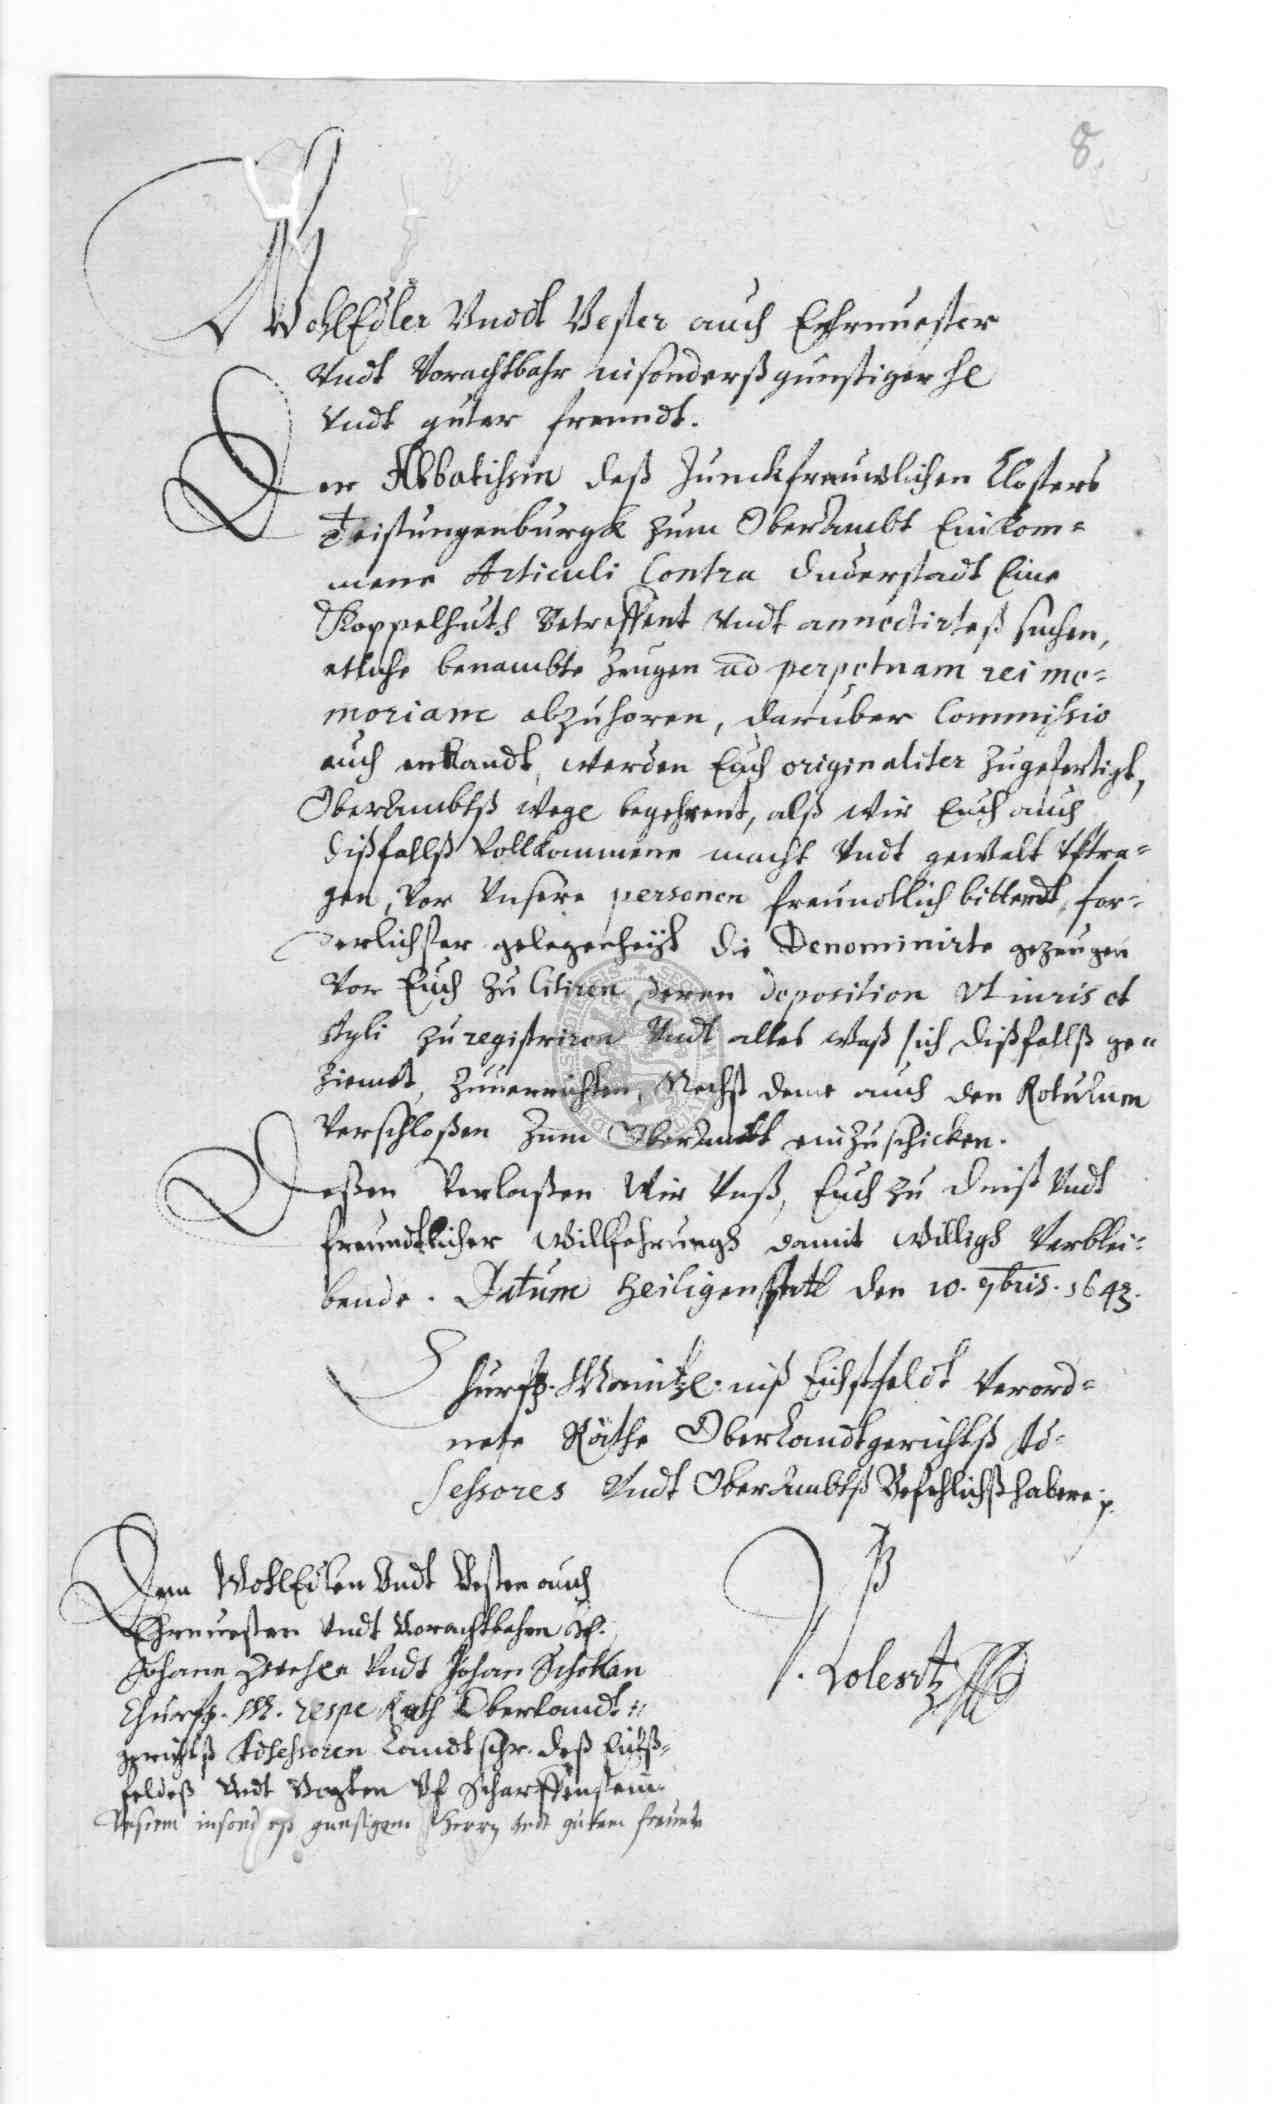 8.
WohlEdler Vndt Vester auch Ehrnuester
Vndt Vorachtbahr insonderß gunstiger he
Vndt guter freundt.
Der Abbatissin deß Junckfrauwlichen Closters
Teistungenburgk zum OberAmbt Einkom=
mene Articuli Contra Duderstadt Eine
Koppelhuth Betreffent Vndt annectirteß suchen,
etliche benambte Zeugen ad perpetuam rei me=
moriam abzuhoren, daruber Commissio
auch erkandt, werden Euch originaliter zugefertigt,
OberAmbtß wege begehrent, alß wir Euch auch
dißfallß Vollkommene macht Vndt gewalt Vftra=
gen, Vor Vnsere personen freundtlich bittendt, for=
derlichster gelegenheytt die Denominirte gezeugen
Vor Euch zu Citiren, deren deposition Vt iuris et
styli zu registriren Vndt alles waß sich dißfallß ge=
ziemet, zuuerrichten, Nechst deme auch den Rotulum
Verschloßen zum OberAmbt einzuschicken.
Deßen Verlaßen Wir Vnß, Euch zu dinst Vndt
freundtlicher Willfehrungh damit Willigh Verblei=
bende. Datum Heiligenstatt den 10. 9bris. 1643.
Churfp. Maintz. inß Eichßfeldt Verord=
nete Räthe OberLandtgerichtß Ad=
sessores Vndt OberAmbtß Befehlichßhabere p.
Dem WohlEdlen Vndt Vesten auch
Ehrnuesten Vndt Vorachtbahrn H.
Johann Vndt Johan
Churfp. M. respe Rath Oberlandt=
gerichtß Adsessoren Landtschr. deß Eichß=
feldeß Vndt Vogten Vf Scharffenstein
Vnserm insonderß gunstigem Herrn Vndt gutem freunde